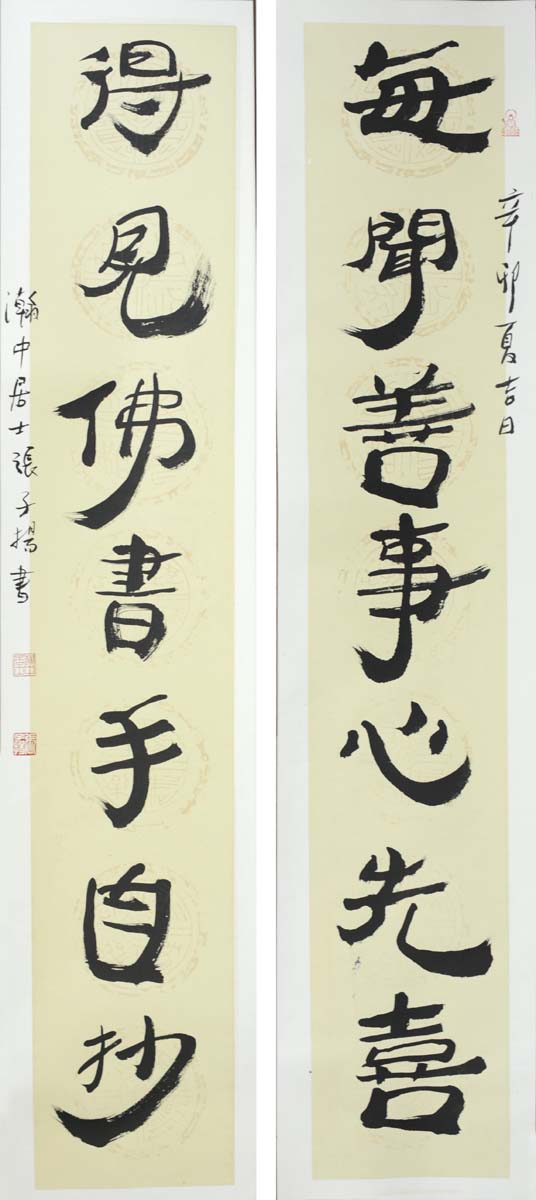 每聞善事心先喜
辛卯夏吉日
得見佛書手自抄
瀚中居士張子揚書